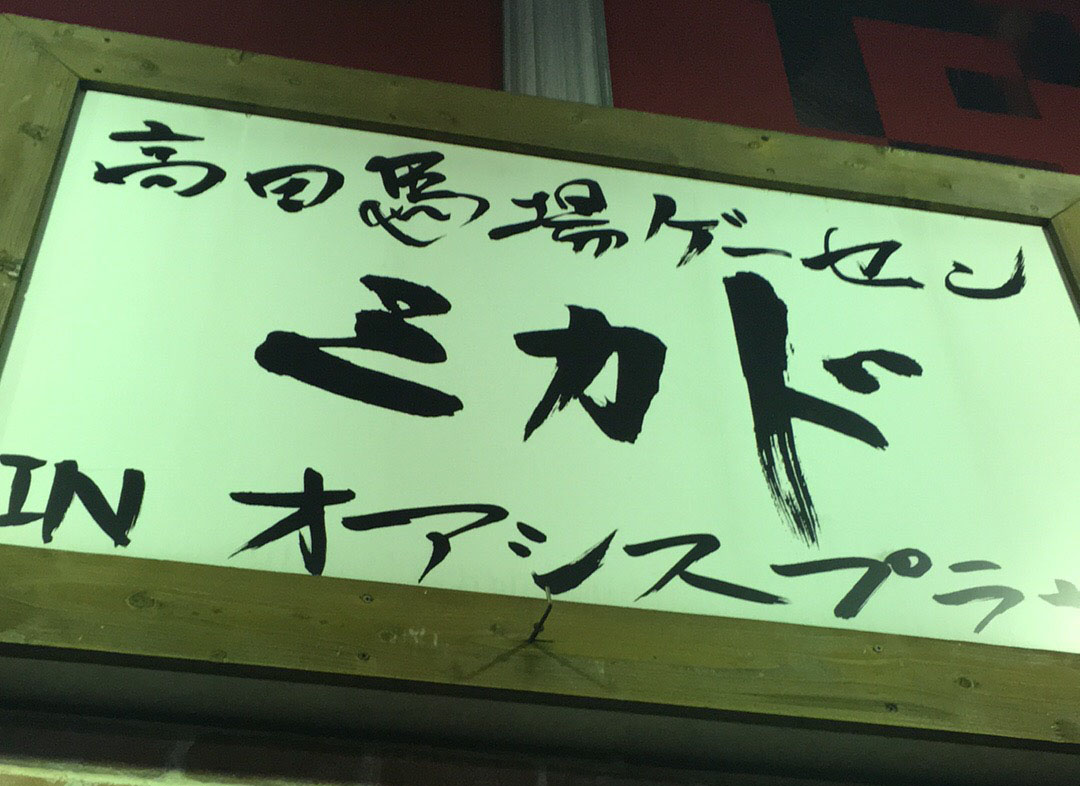 高田馬場ゲーセン
ミカド
IN オアシスプラ